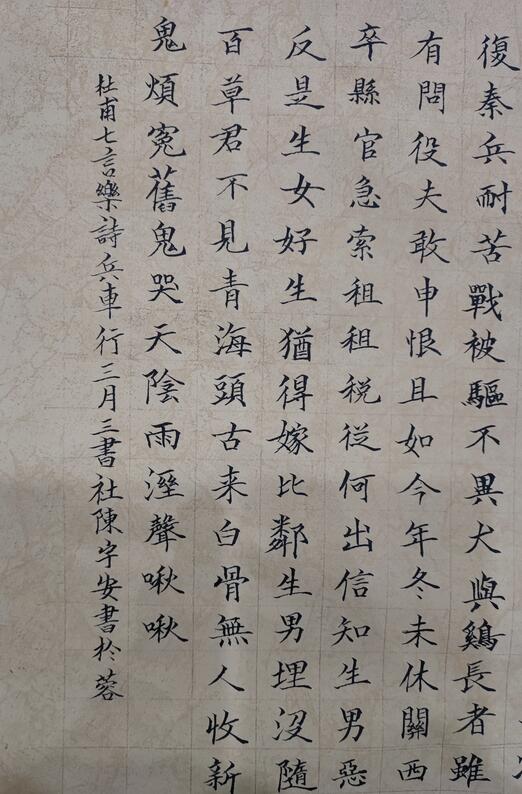 復秦兵耐苦戰被驅不異犬與鷄長者雖
有問役夫敢申恨且如今年冬未休關西
卒縣官急索租租税從何出信知生男惡
反是生女好生猶得嫁比鄰生男埋没隨
百草君不見青海頭古来白骨無人收新
鬼煩冤舊鬼哭天陰雨溼聲啾啾
杜甫七言樂詩兵車行三月三書社陳宇安書於蓉